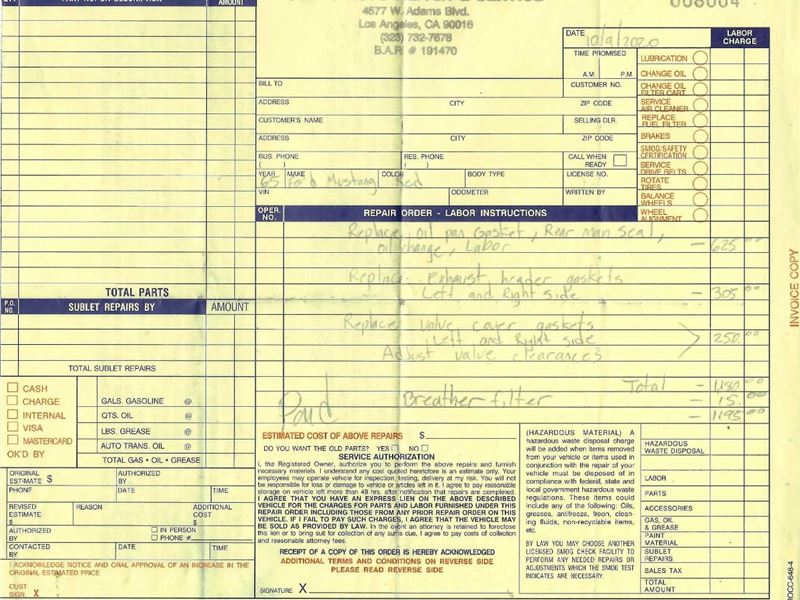 PART NO. OR DESCRIPTION
AMOUNT
4577 W. Adams Blvd.
Los Angeles, CA 90016
(323) 732-7678
B.A.R. # 191470
068004
DATE 10/9/2020
LABOR CHARGE
TIME PROMISED
A.M. P.M.
BILL TO
CUSTOMER NO.
ADDRESS CITY ZIP CODE
CUSTOMER'S NAME SELLING DLR.
ADDRESS CITY ZIP CODE
BUS. PHONE
( )
RES. PHONE
( )
CALL WHEN READY
YEAR 65 MAKE Ford Mustang COLOR Red BODY TYPE LICENSE NO.
VIN ODOMETER WRITTEN BY
LUBRICATION
CHANGE OIL
CHANGE OIL FILTER CART.
SERVICE AIR CLEANER
REPLACE FUEL FILTER
BRAKES
SMOG/SAFETY CERTIFICATION
SERVICE DRIVE BELTS
ROTATE TIRES
BALANCE WHEELS
WHEEL ALIGNMENT
OPER. NO. REPAIR ORDER - LABOR INSTRUCTIONS
Replace, oil pan Gasket, Rear man Seal,
oil change, Labor — 625.00
Replace Exhaust header gaskets
Left and Right side — 305.00
Replace valve cover gaskets
Left and Right side > 250.00
Adjust valve clearances
Total — 1,180.00
Breather filter — 15.00
Paid — 1195.00
TOTAL PARTS
P.O. NO. SUBLET REPAIRS BY AMOUNT
TOTAL SUBLET REPAIRS
CASH
CHARGE
INTERNAL
VISA
MASTERCARD
OK'D BY
GALS. GASOLINE @
QTS. OIL @
LBS. GREASE @
AUTO TRANS. OIL @
TOTAL GAS • OIL • GREASE
ORIGINAL ESTIMATE $ AUTHORIZED BY
PHONE DATE TIME
REVISED ESTIMATE $ REASON ADDITIONAL COST $
AUTHORIZED BY IN PERSON
PHONE #
CONTACTED BY DATE TIME
I ACKNOWLEDGE NOTICE AND ORAL APPROVAL OF AN INCREASE IN THE
ORIGINAL ESTIMATED PRICE.
CUST. SIGN. X
ESTIMATED COST OF ABOVE REPAIRS $
DO YOU WANT THE OLD PARTS? YES NO
SERVICE AUTHORIZATION
I, the Registered Owner, authorize you to perform the above repairs and furnish
necessary materials. I understand any cost quoted heretofore is an estimate only. Your
employees may operate vehicle for inspection, testing, delivery at my risk. You will not
be responsible for loss or damage to vehicle or articles left in it. I agree to pay reasonable
storage on vehicle left more than 48 hrs. after notification that repairs are completed.
I AGREE THAT YOU HAVE AN EXPRESS LIEN ON THE ABOVE DESCRIBED
VEHICLE FOR THE CHARGES FOR PARTS AND LABOR FURNISHED UNDER THIS
REPAIR ORDER INCLUDING THOSE FROM ANY PRIOR REPAIR ORDER ON THIS
VEHICLE. IF I FAIL TO PAY SUCH CHARGES, I AGREE THAT THE VEHICLE MAY
BE SOLD AS PROVIDED BY LAW. In the event an attorney is retained to foreclose
this lien or to bring suit for collection of any sums due, I agree to pay costs of collection
and reasonable attorney fees.
RECEIPT OF A COPY OF THIS ORDER IS HEREBY ACKNOWLEDGED
ADDITIONAL TERMS AND CONDITIONS ON REVERSE SIDE
PLEASE READ REVERSE SIDE
SIGNATURE X
(HAZARDOUS MATERIAL) A
hazardous waste disposal charge
will be added when items removed
from your vehicle or items used in
conjunction with the repair of your
vehicle must be disposed of in
compliance with federal, state and
local government hazardous waste
regulations. These items could
include any of the following: Oils,
greases, antifreeze, freon, clean-
ing fluids, non-recyclable items,
etc.
BY LAW YOU MAY CHOOSE ANOTHER
LICENSED SMOG CHECK FACILITY TO
PERFORM ANY NEEDED REPAIRS OR
ADJUSTMENTS WHICH THE SMOG TEST
INDICATES ARE NECESSARY.
HAZARDOUS WASTE DISPOSAL
LABOR
PARTS
ACCESSORIES
GAS, OIL & GREASE
PAINT MATERIAL
SUBLET REPAIRS
SALES TAX
TOTAL AMOUNT
INVOICE COPY
ROCC-648-4